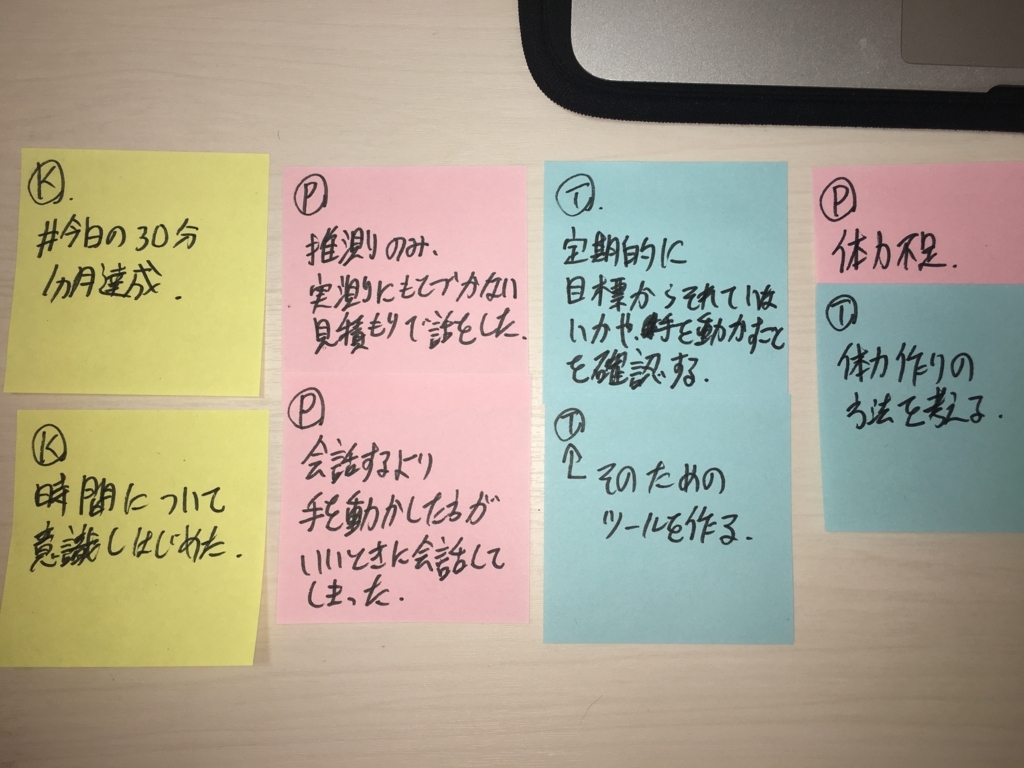 K.
#今日の30分
1ヵ月達成.
K
時間について
意識しはじめた.
P
推測のみ、
実測にもとづかない
見積もりで話をした.
P
会話するより
手を動かした方が
いいときに会話して
しまった.
T.
定期的に
目標からそれていな
いかや、手を動かすこと
を確認する.
T
↑そのための
ツールを作る.
P
体力不足.
T
体力作りの
方法を考える.